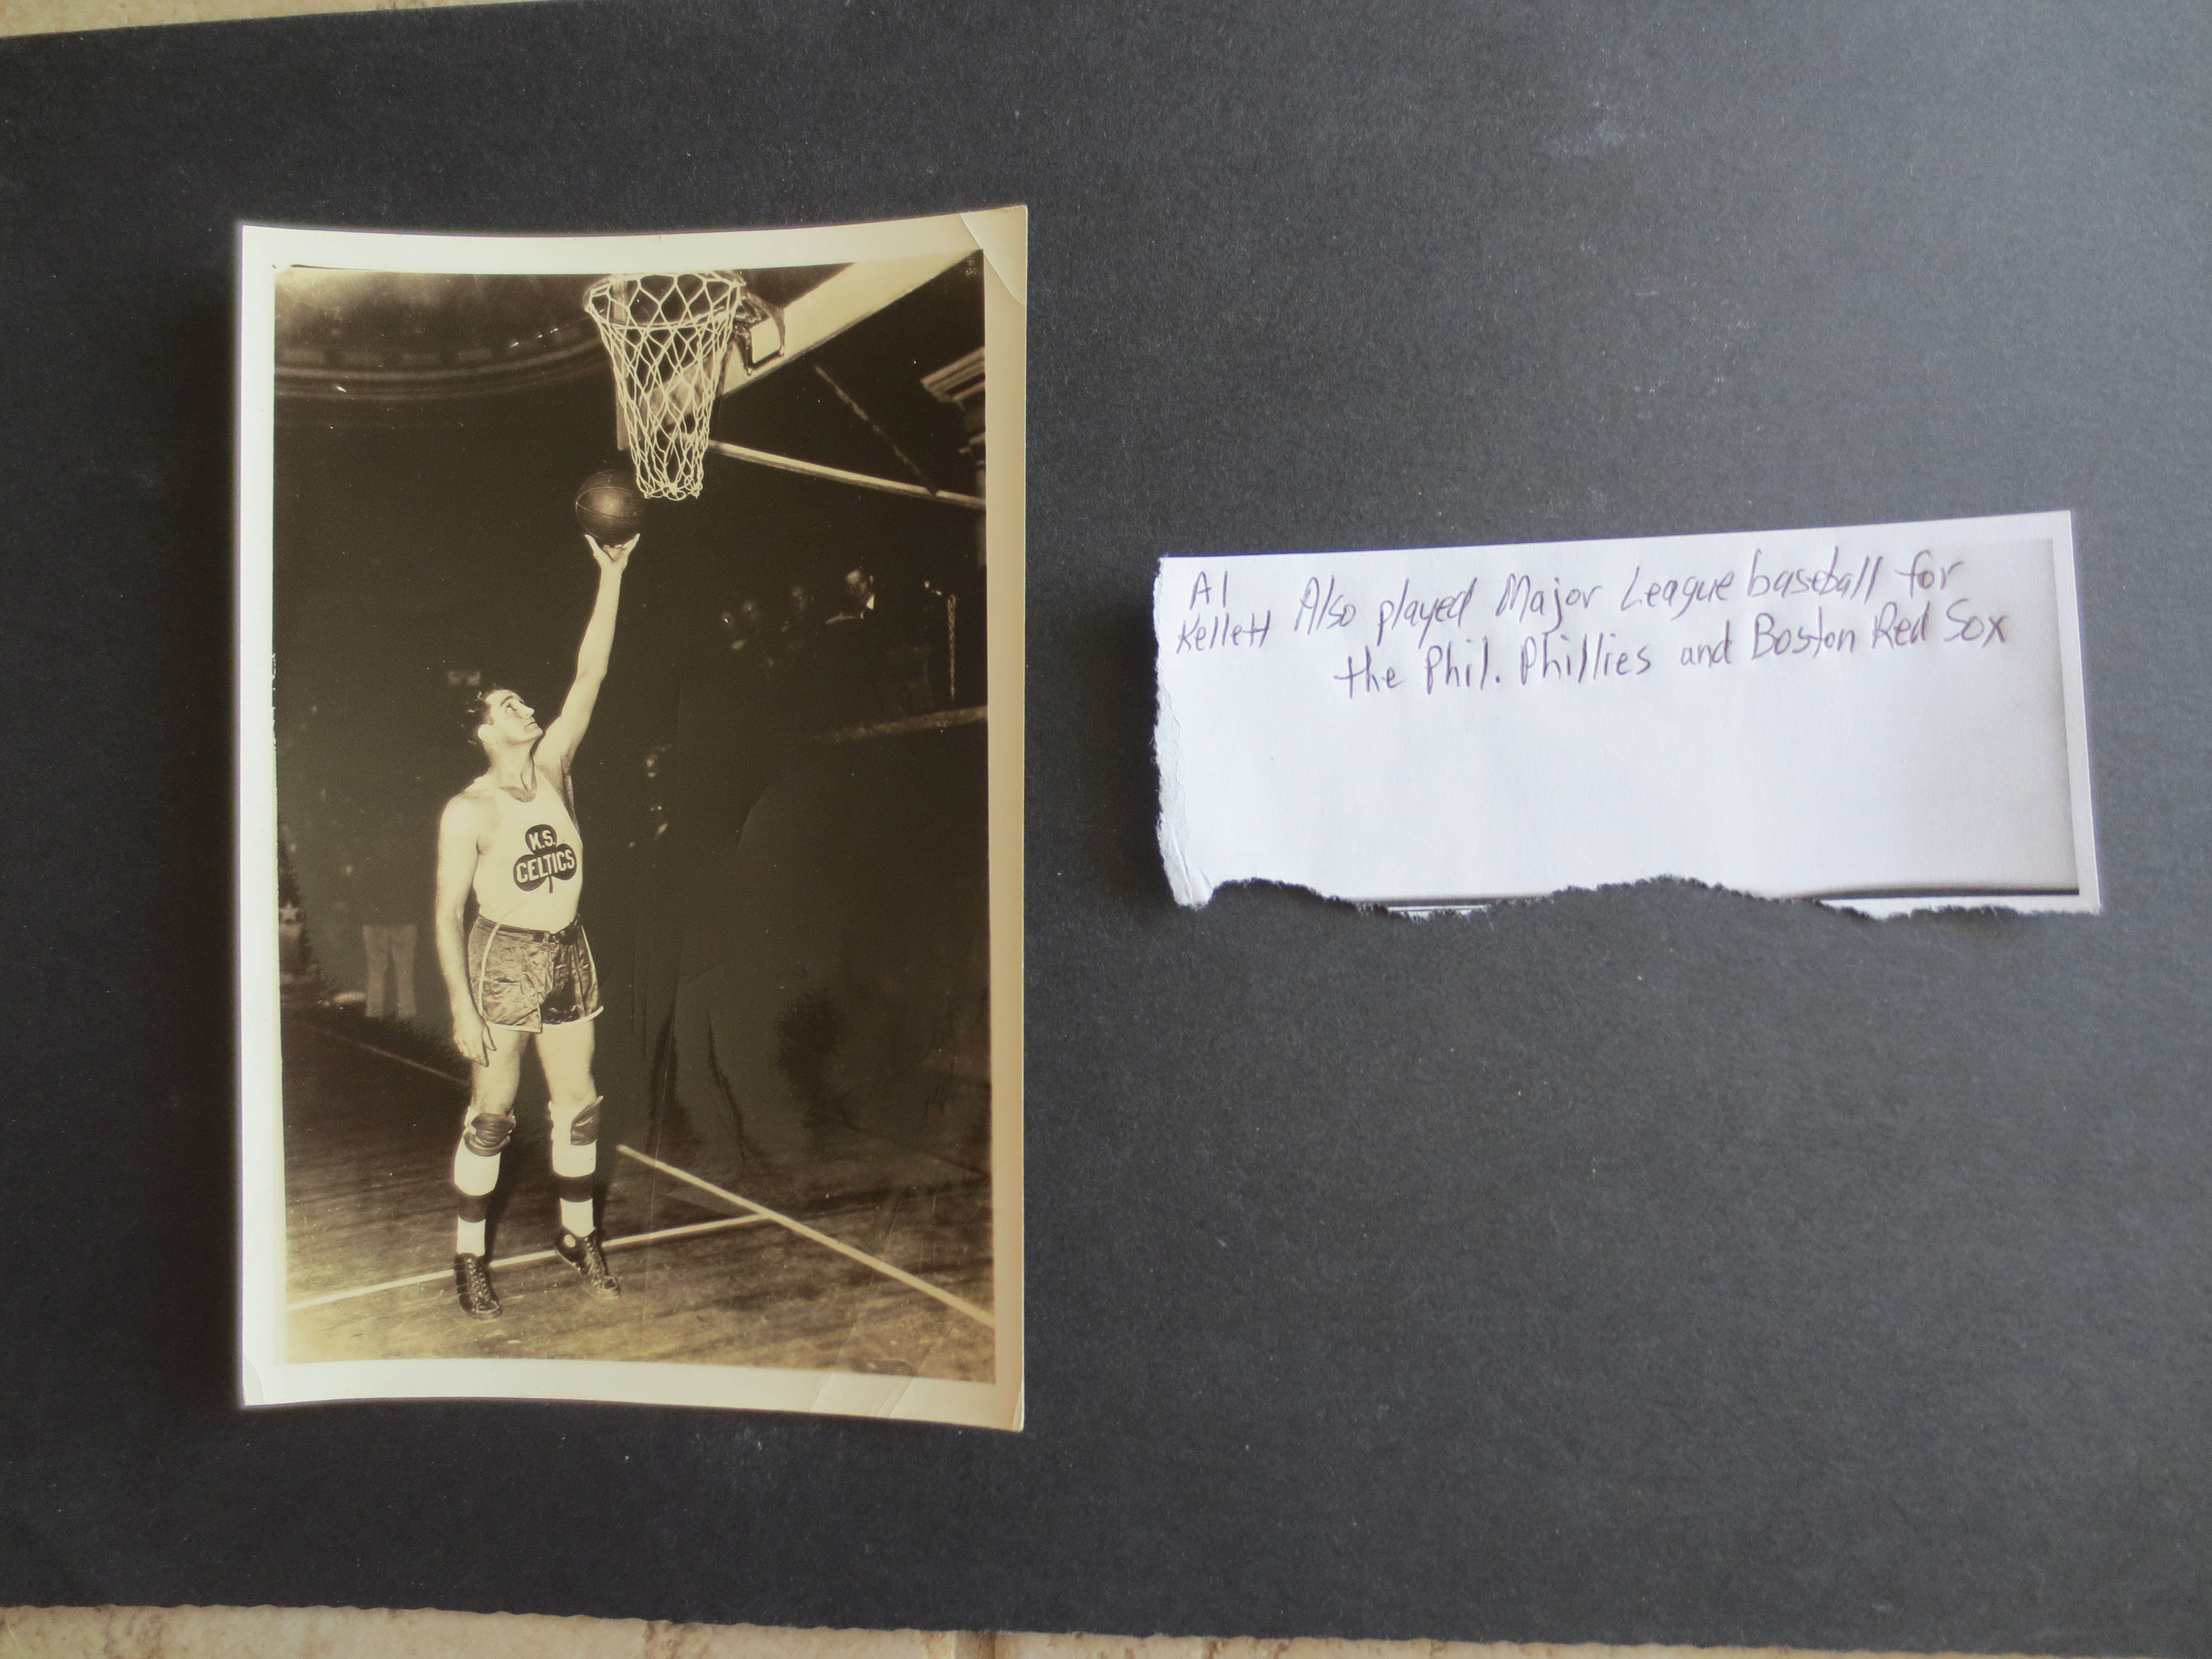 K.S.
CELTICS
Al
Kellett
Also played Major League baseball for
the Phil. Phillies and Boston Red Sox